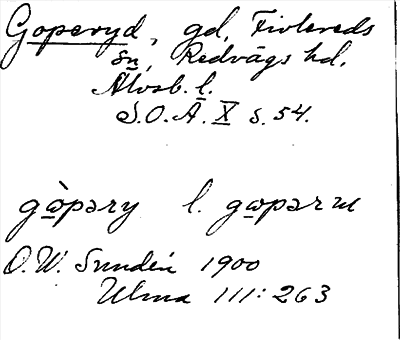 Goperyd, gd, Fivlereds
sn, Redvägs hd,
Älvsb. l.
S.O.Ä. X s. 54.
gὼpəry l. gωpərɯ
O.W. Sundén 1900
Ulma 111:263